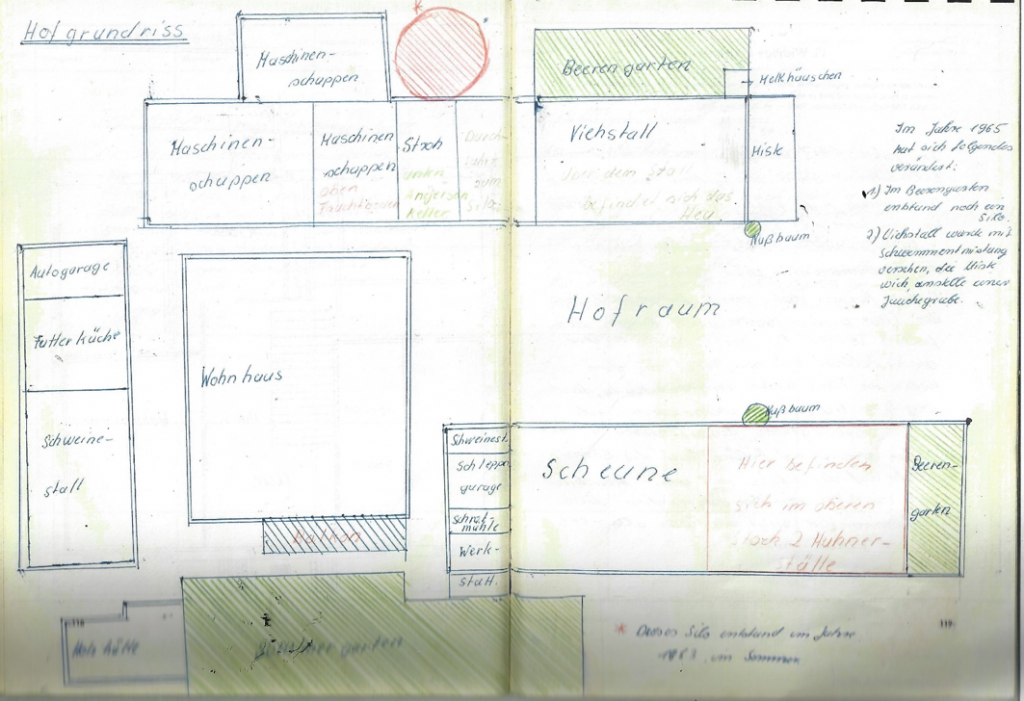 Hofgrundriss
Maschinen-
schuppen
*
Beerengarten
Melkhäuschen
Maschinen-
schuppen
Maschinen
schuppen
oben
Fruchtboden
Stroh
unten
Angersen
Keller
Durch-
fahrt
zum
Silo
Viehstall
über dem Stall
befindet sich das
Heu
Mist
Im Jahre 1965
hat sich folgendes
verändert:
1) Im Beerengarten
entstand noch ein
Silo.
2) Viehstall wurde mit
Schwemmentmistung
versehen, die Miste
wich, anstelle einer
Jauchegrube.
Nußbaum
Autogarage
Futterküche
Schweine-
stall
Wohnhaus
Balkon
Hofraum
Nußbaum
Schweinest.
Schlepper
garage
Schrot
mühle
Werk-
statt.
Scheune
Hier befinden
sich im oberen
Stock 2 Hühner-
ställe
Beeren-
garten
118
Holzhütte
garten
* Dieses Silo entstand im Jahre
1963, im Sommer
119